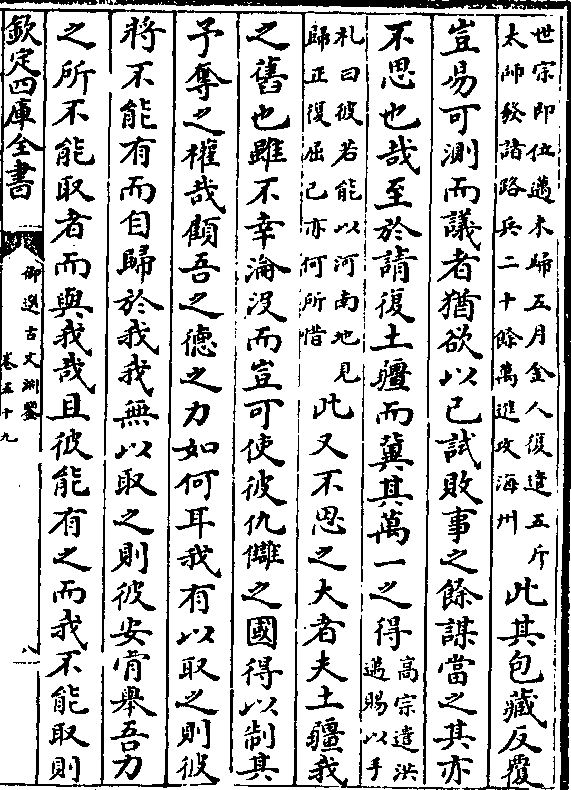 世宗即位邁未歸五月金人復遣五斤
太師發諸路兵二十餘萬進攻海州
此其包藏反覆
豈易可測而議者猶欲以已試敗事之餘謀當之其亦
不思也哉至於請復土疆而冀其萬一之得
高宗遣洪
邁賜以手
札曰彼若能以河南地見
歸正復屈己亦何所惜
此又不思之大者夫土疆我
之舊也雖不幸淪没而豈可使彼仇讎之國得以制其
予奪之權哉顧吾之德之力如何耳我有以取之則彼
將不能有而自歸於我我無以取之則彼安肯舉吾力
之所不能取者而與我哉且彼能有之而我不能取則
欽定四庫全書
御選古文淵鑒
卷五十九
八